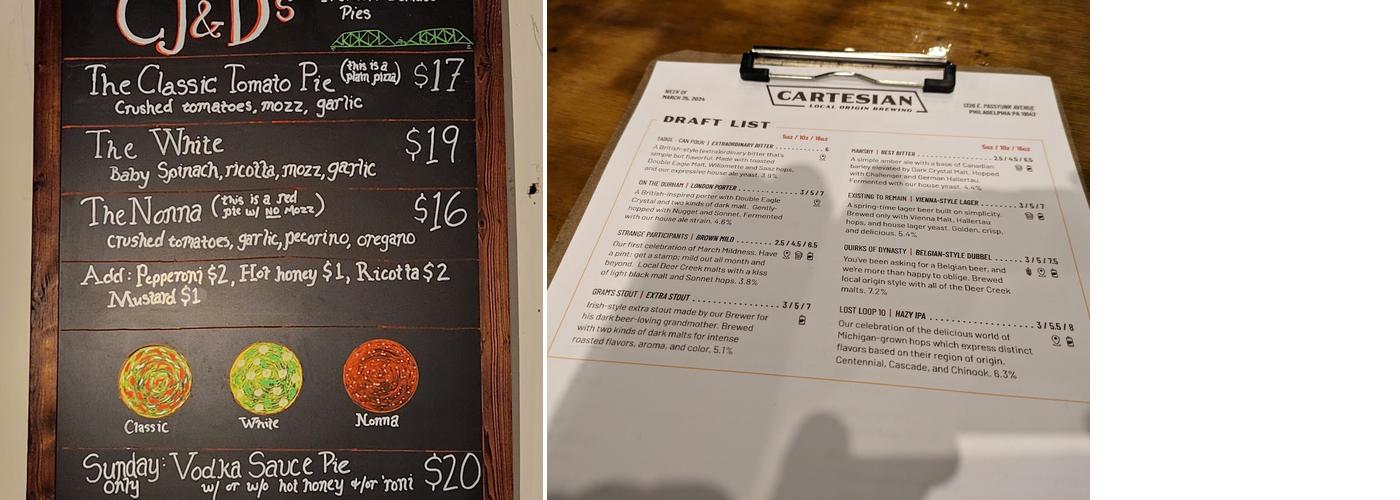 CJ&D's
Pies
The Classic Tomato Pie (this is a plain pizza) $17
Crushed tomatoes, mozz, garlic
The White $19
Baby Spinach, ricotta, mozz, garlic
The Nonna (this is a red pie w/ NO Mozz) $16
Crushed tomatoes, garlic, pecorino, oregano
Add: Pepperoni $2, Hot honey $1, Ricotta $2
Mustard $1
Classic
White
Nonna
Sunday only: Vodka Sauce Pie $20
w/ or w/o hot honey +/or 'roni
WEEK OF
MARCH 25, 2024
CARTESIAN
LOCAL ORIGIN BREWING
1326 E. PASSYUNK AVENUE
PHILADELPHIA PA 19147
DRAFT LIST
5oz / 10z / 16oz
- CAN POUR | EXTRAORDINARY BITTER 6
A British-style extraordinary bitter that's
simple but flavorful. Made with toasted
Double Eagle Malt, Willamette and Saaz hops,
and our expressive house ale yeast. 3.9%
ON THE DURHAM | LONDON PORTER 3 / 5 / 7
A British-inspired porter with Double Eagle
Crystal and two kinds of dark malt. Gently-
hopped with Nugget and Sonnet. Fermented
with our house ale strain. 4.6%
STRANGE PARTICIPANTS | BROWN MILD 2.5 / 4.5 / 6.5
Our first celebration of March Mildness. Have
a pint; get a stamp; mild out all month and
beyond. Local Deer Creek malts with a kiss
of light black malt and Sonnet hops. 3.8%
GRAM'S STOUT | EXTRA STOUT 3 / 5 / 7
Irish-style extra stout made by our Brewer for
his dark beer-loving grandmother. Brewed
with two kinds of dark malts for intense
roasted flavors, aroma, and color. 5.1%
5oz / 10z / 16oz
MANSBY | BEST BITTER 2.5 / 4.5 / 6.5
A simple amber ale with a base of Canadian
barley elevated by Dark Crystal Malt. Hopped
with Challenger and German Hallertau.
Fermented with our house yeast. 4.4%
EXISTING TO REMAIN | VIENNA-STYLE LAGER 3 / 5 / 7
A spring-time lager beer built on simplicity.
Brewed only with Vienna Malt, Hallertau
hops, and house lager yeast. Golden, crisp,
and delicious. 5.4%
QUIRKS OF DYNASTY | BELGIAN-STYLE DUBBEL 3 / 5 / 7.5
You've been asking for a Belgian beer, and
we're more than happy to oblige. Brewed
local origin style with all of the Deer Creek
malts. 7.2%
LOST LOOP 10 | HAZY IPA 3 / 5.5 / 8
Our celebration of the delicious world of
Michigan-grown hops which express distinct
flavors based on their region of origin.
Centennial, Cascade, and Chinook. 6.3%